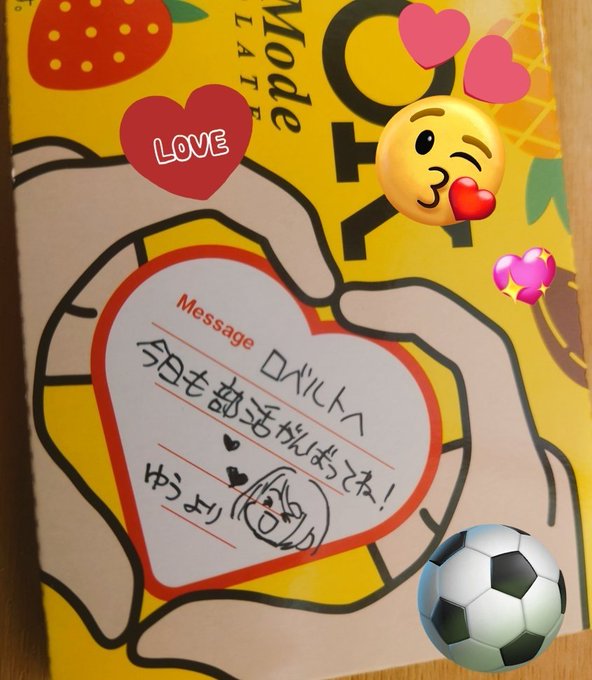 Mode
LATE
LOVE
Message
ロベルトへ
今日も部活がんばってね!
ゆうより